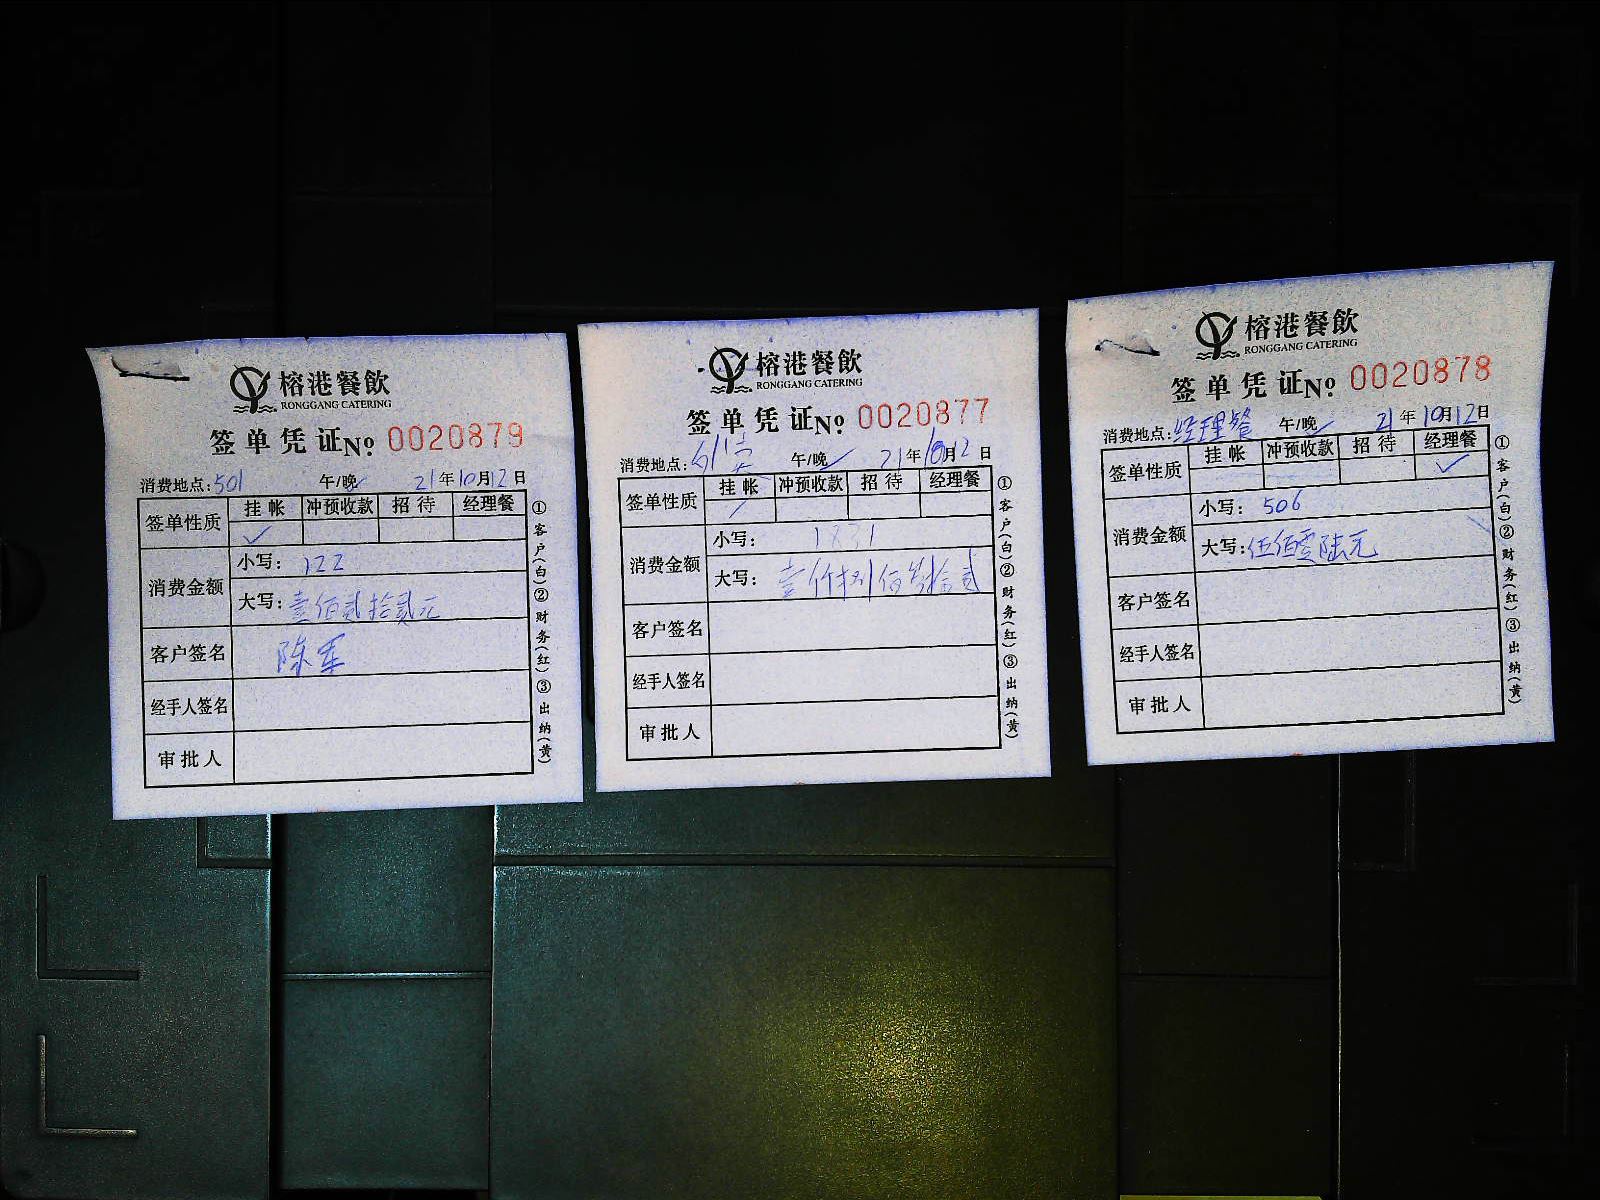 榕港餐飲
RONGGANG CATERING
签单凭证No. 0020879
消费地点:501 午/晚 21年10月12日
签单性质 挂帐 冲预收款 招待 经理餐
✓
消费金额
小写: 122
大写:壹佰贰拾贰元
客户签名 陈军
经手人签名
审批人
①客户(白)②财务(红)③出纳(黄)
榕港餐飲
RONGGANG CATERING
签单凭证No. 0020877
消费地点: 午/晚 21年10月12日
签单性质 挂帐 冲预收款 招待 经理餐
消费金额
小写:
大写: 壹仟捌佰
客户签名
经手人签名
审批人
①客户(白)②财务(红)③出纳(黄)
榕港餐飲
RONGGANG CATERING
签单凭证No. 0020878
消费地点:经理餐 午/晚 21年10月12日
签单性质 挂帐 冲预收款 招待 经理餐
✓
消费金额
小写: 506
大写:伍佰零陆元
客户签名
经手人签名
审批人
①客户(白)②财务(红)③出纳(黄)